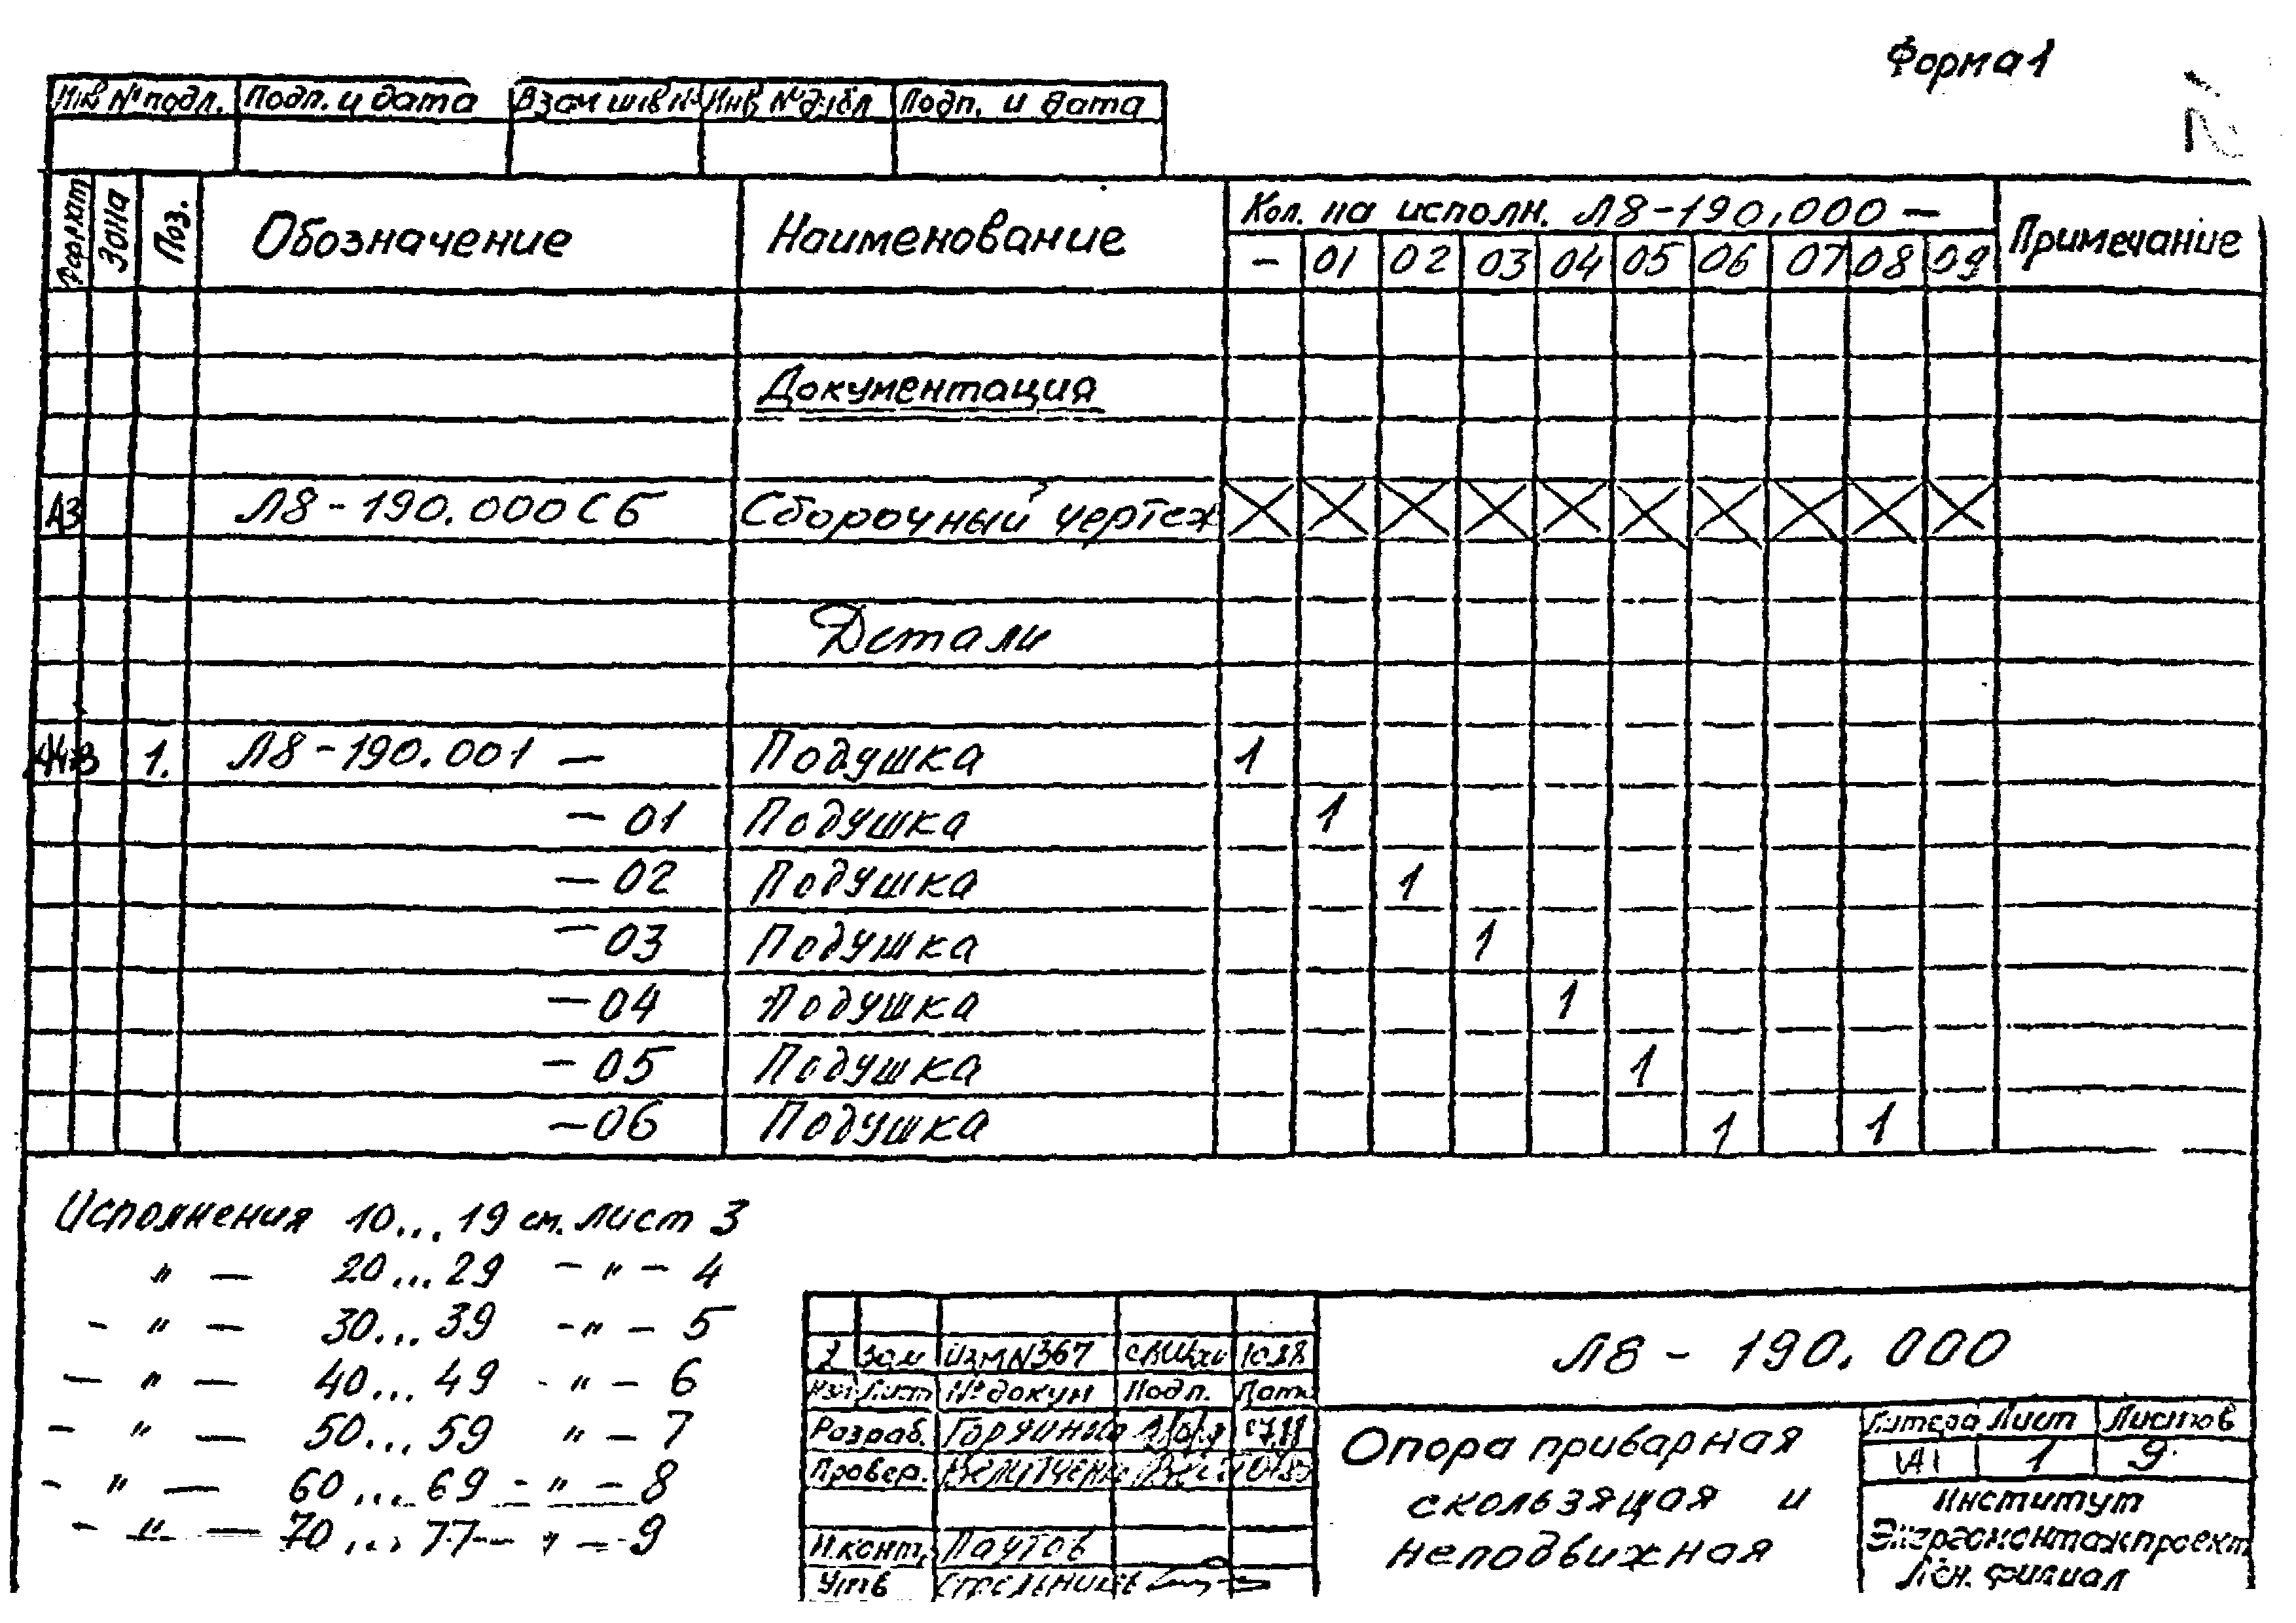 Форма 1
Инв № подл. Подп. и дата Взам инв № Инв № дубл Подп. и дата
Формат Зона Поз. Обозначение Наименование Кол. на исполн. Л8-190.000 — Примечание
— 01 02 03 04 05 06 07 08 09
Документация
А3 Л8-190.000 СБ Сборочный чертеж
Детали
1. Л8-190.001 — Подушка 1
— 01 Подушка 1
— 02 Подушка 1
— 03 Подушка 1
— 04 Подушка 1
— 05 Подушка 1
— 06 Подушка 1 1
Исполнения 10...19 см. лист 3
" — 20...29 — " — 4
- " — 30...39 - " — 5
— " — 40...49 - " — 6
- " — 50...59 " — 7
- " — 60...69 - " — 8
- " — 70...77 — " — 9
2 Зам Изм N367 10.88
Изм Лист № докум Подп. Дата
Разраб. 07.88
Провер.
Н.конт. Паутов
Утв
Л8 - 190.000
Опора приварная
скользящая и
неподвижная
Литера Лист Листов
1 9
Институт
Энергомонтажпроект
Лен. филиал